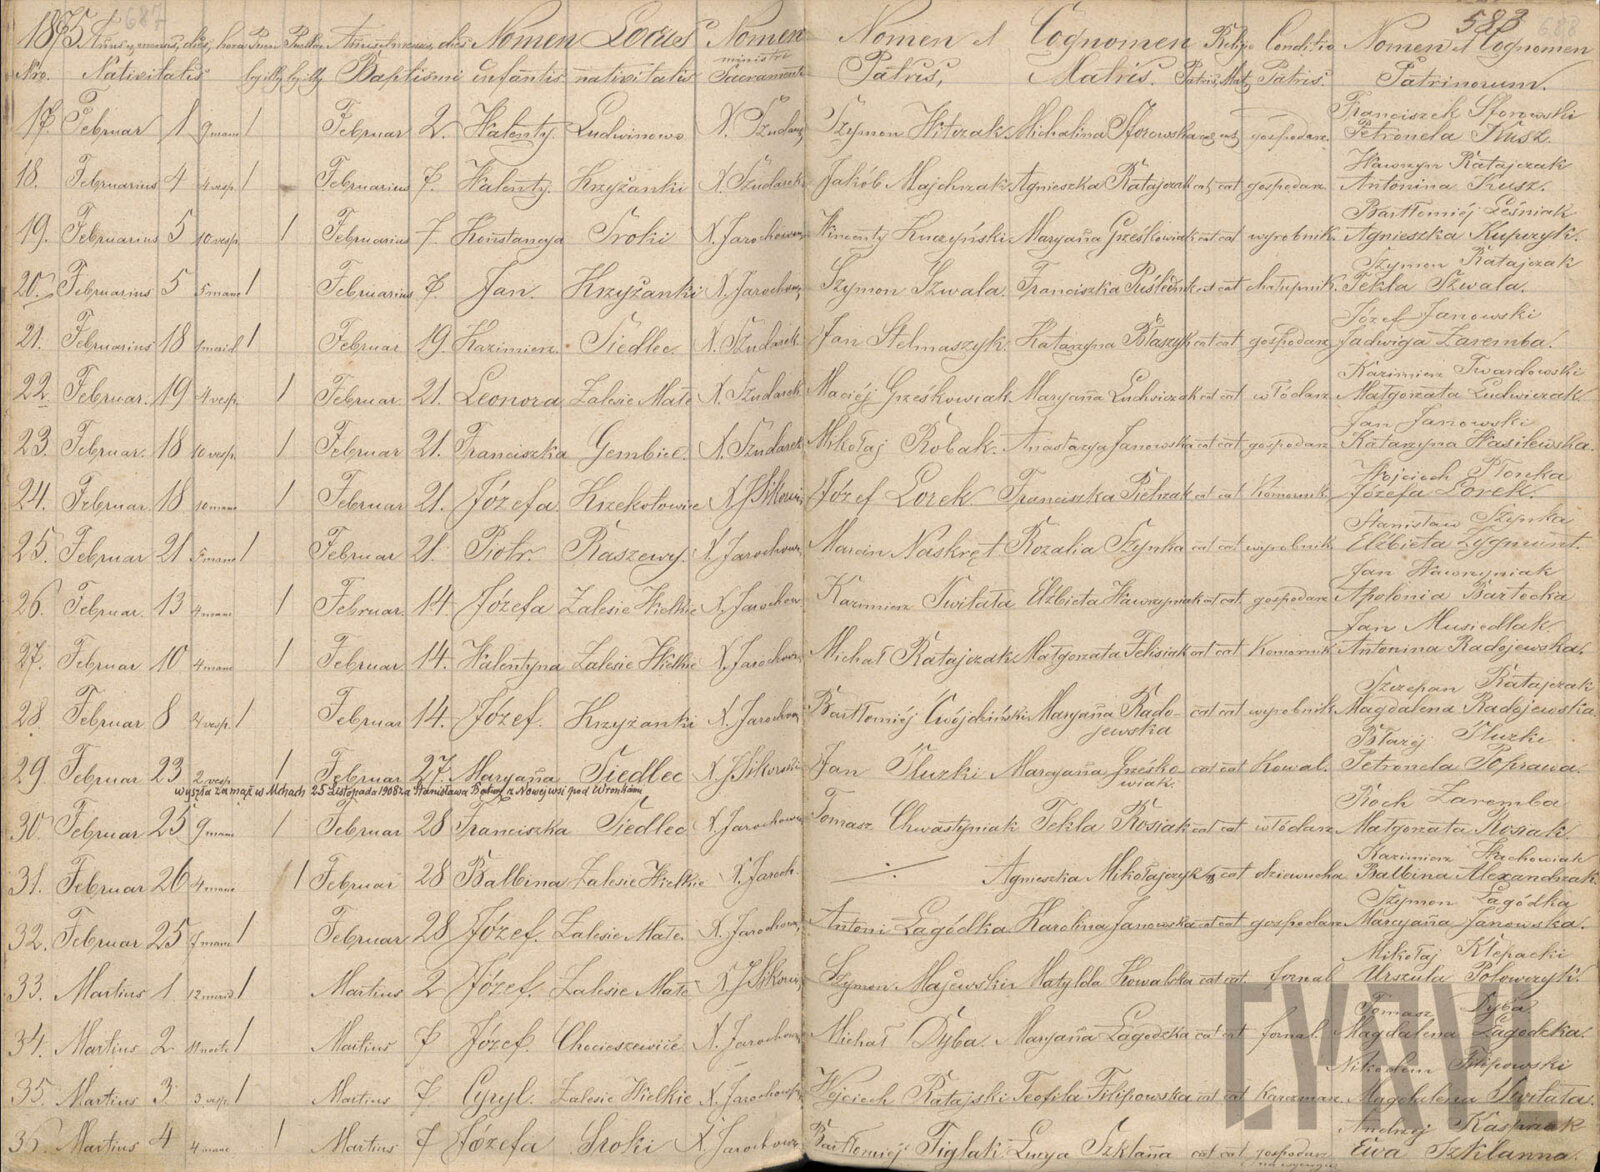 1875 Annus, mensis, dies, hora Pueri Puellae Annus, mensis, dies Nomen Locus Nomen Nomen et Cognomen Relig. Conditio Nomen et Cognomen 583
Nro. Nativitatis Baptismi infantis nativitatis ministri Sacramenti Patris, Matris. Patris, Mat. Patris. Patrinorum.
Franciszek Sforowski
17. Februar 1 9 mane 1 Februar 2. Walenty. Ludwinowo X. Szudarek Szymon Witczak Michalina Sforowska cat cat gospodarz Petronela Kusz.
Wawrzyn Ratajczak
18. Februarius 4 4 vesp. 1 Februarius 7. Walenty. Krzyżanki X. Szudarek Jakób Majchrzak Agnieszka Ratajczak cat cat gospodarz Antonina Kusz.
Bartłomiej Leśniak
19. Februarius 5 10 vesp. 1 Februarius 7. Konstancya Sroki X. Jarochows. Wincenty Kuczyński Maryańa Grześkowiak cat cat wyrobnik Agnieszka Kupczyk.
Szymon Ratajczak
20. Februarius 5 5 mane 1 Februarius 7. Jan. Krzyżanki X. Jarochows. Szymon Szwala. Franciszka cat cat chałupnik Tekla Szwala.
Józef Janowski
21. Februarius 18 1 merid 1 Februar 19. Kazimierz. Siedlec. X. Szudarek Jan Stelmaszyk. Katarzyna Błaszyk cat cat gospodarz Jadwiga Zaremba.
Kazimierz Twardowski
22. Februar. 19 4 vesp. 1 Februar. 21. Leonora Zalesie Małe X. Szudarek Maciéj Grześkowiak. Maryańa Ludwiczak cat cat włódarz Małgorzata Ludwiczak
Jan Janowski
23. Februar. 18 10 vesp. 1 Februar 21. Franciszka Gembice. X. Szudarek Mikołaj Robak. Anastazya Janowska cat cat gospodarz Katarzyna Wasilewska.
Wojciech Płonka
24. Februar. 18 10 mane 1 Februar 21. Józefa Krzekotowice X. J. Sikorski Józef Lorek Franciszka Pietrzak cat cat Komornik Józefa Lorek.
Stanisław Szynka
25. Februar 21 5 mane 1 Februar 21. Piotr. Raszewy. X. Jarochows. Marcin Naskręt Rozalia Szynka cat cat wyrobnik Elżbieta Zygmunt.
Jan Wawrzyniak
26. Februar. 13 4 mane 1 Februar. 14. Józefa Zalesie Wielkie X. Jarochow. Kazimierz Switała Elżbieta Wawrzyniak cat cat gospodarz Apolonia Bartecka
Jan Musiedlak
27. Februar 10 4 mane 1 Februar. 14. Walentyna Zalesie Wielkie X. Jarochows. Michał Ratajczak Małgorzata Felisiak cat cat Komornik Antonina Radojewska.
Szczepan Ratajczak
28. Februar 8 vesp. 1 Februar 14. Józef. Krzyżanki X. Jarochow. Bartłomiéj Ćwójdziński Maryańa Rado-jewska cat cat wyrobnik Magdalena Radojewska.
Błażéj Słuzki
29 Februar 23 2 vesp. 1 Februar 27. Maryańa Siedlec X. J. Sikorski Jan Słuzki Maryańa Grześko-wiak. cat cat Kowal. Petronela Poprawa.
wyszła zamąż w Mchach 25 Listopada 1908 za Stanisława z Nowejwsi pod Wronkami
Roch Zaremba
30. Februar 25 9 mane 1 Februar 28 Franciszka Siedlec X. Jarochows. Tomasz Chwastyniak Tekla Rosiak cat cat włódarz Małgorzata Rosiak.
Kazimierz Stachowiak
31. Februar 26 4 mane 1 Februar 28 Balbina Zalesie Wielkie X. Jaroch. Agnieszka Mikołajczyk cat dziewucha Balbina Alexandrzak.
Szymon Łagódka
32. Februar 25 7 mane 1 Februar 28 Józef. Zalesie Małe. X. Jarochows. Antoni Łagódka Karolina Janowska cat cat gospodarz Maryańa Janowska.
Mikołaj Klepacki
33. Martius 1 12 merid 1 Martius 2 Józef. Zalesie Małe X. J. Sikorski Szymon Majewski Matylda Kowalska cat cat fornal Urszula Połowczyk.
Tomasz Dyba
34. Martius 2 11 nocte 1 Martius 7 Józef. Chocieszewice X. Jarochows. Michał Dyba. Maryańa Łagodzka cat cat fornal. Magdalena Łagodzka.
Nikodem Filipowski
35. Martius 3 3 vesp. 1 Martius 7 Cyryl. Zalesie Wielkie X. Jarochowsk. Wojciech Ratajski Teofila Filipowska cat cat Karczmarz Magdalena Switała.
Andrzej Kasprzak
36. Martius 4 4 mane 1 Martius 7 Józefa Sroki X. Jarochows. Bartłomiéj Figlak Łucya Szklańa cat cat gospodarz Ewa Szklanna.
CYRYL